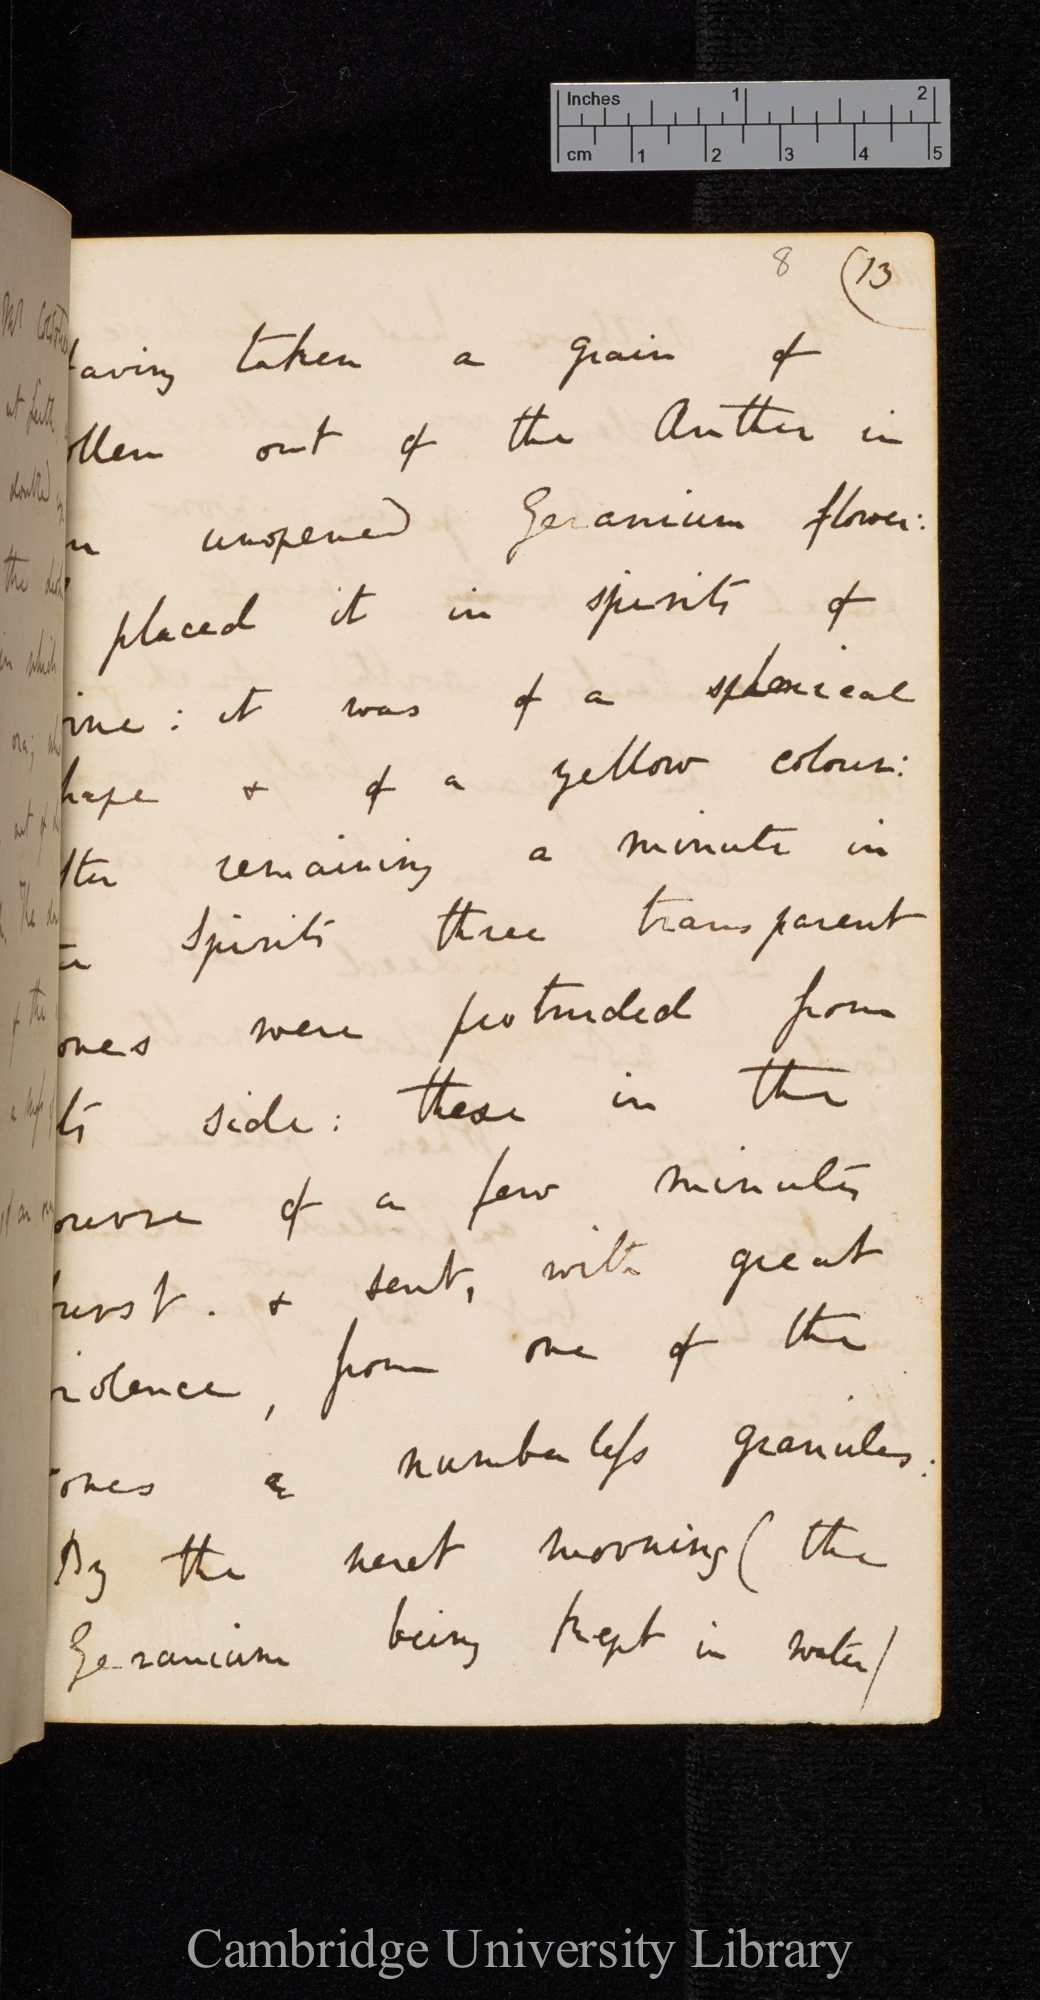 Inches 1 2
cm 1 2 3 4 5
8 (13
Having taken a grain of
ollen out of the Anther in
n unopened Geranium flower:
placed it in spirits of
ine: it was of a spherical
hape & of a yellow colour:
fter remaining a minute in
spirits three transparent
ones were protruded from
its side: these in the
ourse of a few minutes
burst. & sent, with great
violence, from one of the
cones numberless granules:
By the next morning (the
Geranium being kept in water)
the
in which
The
of the
Cambridge University Library